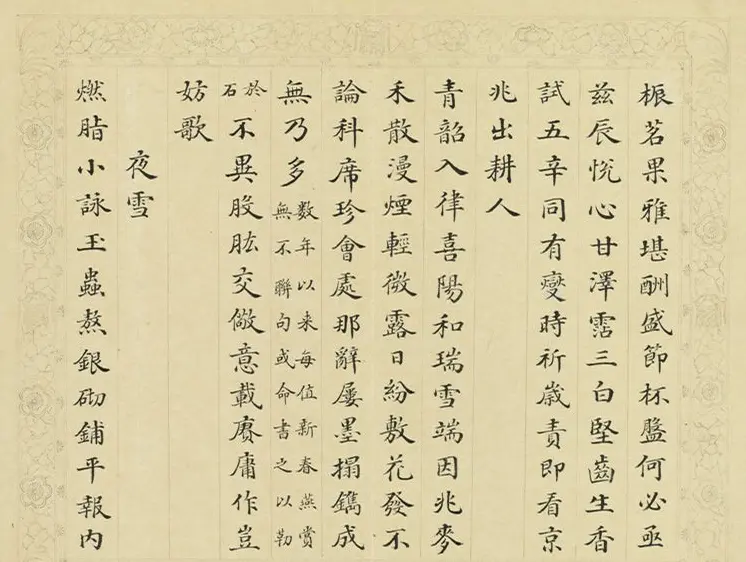 桭茗果雅堪酬盛節杯盤何必亟
茲辰悅心甘澤霑三白堅齒生香
試五辛同有燮時祈歲責即看京
兆出耕人
青韶入律喜陽和瑞雪端因兆麥
禾散漫煙輕微露日紛敷花發不
論科席珍會處那辭屢墨搨鐫成
無乃多數年以来每值新春燕賞
無不聯句或命書之以勒
於
石
不異股肱交儆意載賡庸作豈
妨歌
夜雪
燃脂小詠玉蟲熬銀砌鋪平報内